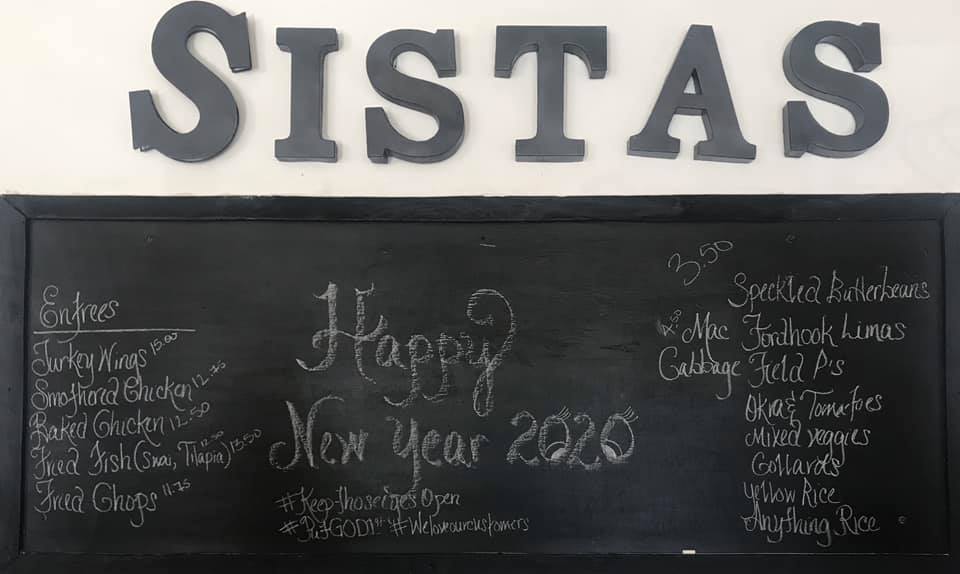 SISTAS
Entrees
Turkey Wings 15.00
Smothered Chicken 12.75
Baked Chicken 12.50
Fried Fish (Swai, Tilapia) 12.50 13.50
Fried Chops 11.75
Happy
New Year 2020
#KeepthoseeyesOpen
#PutGOD1st #Weloveourcustomers
3.50
4.50 Mac
Cabbage
Speckled Butterbeans
Fordhook Limas
Field P's
Okra & Tomatoes
Mixed veggies
Collards
Yellow Rice
Anything Rice